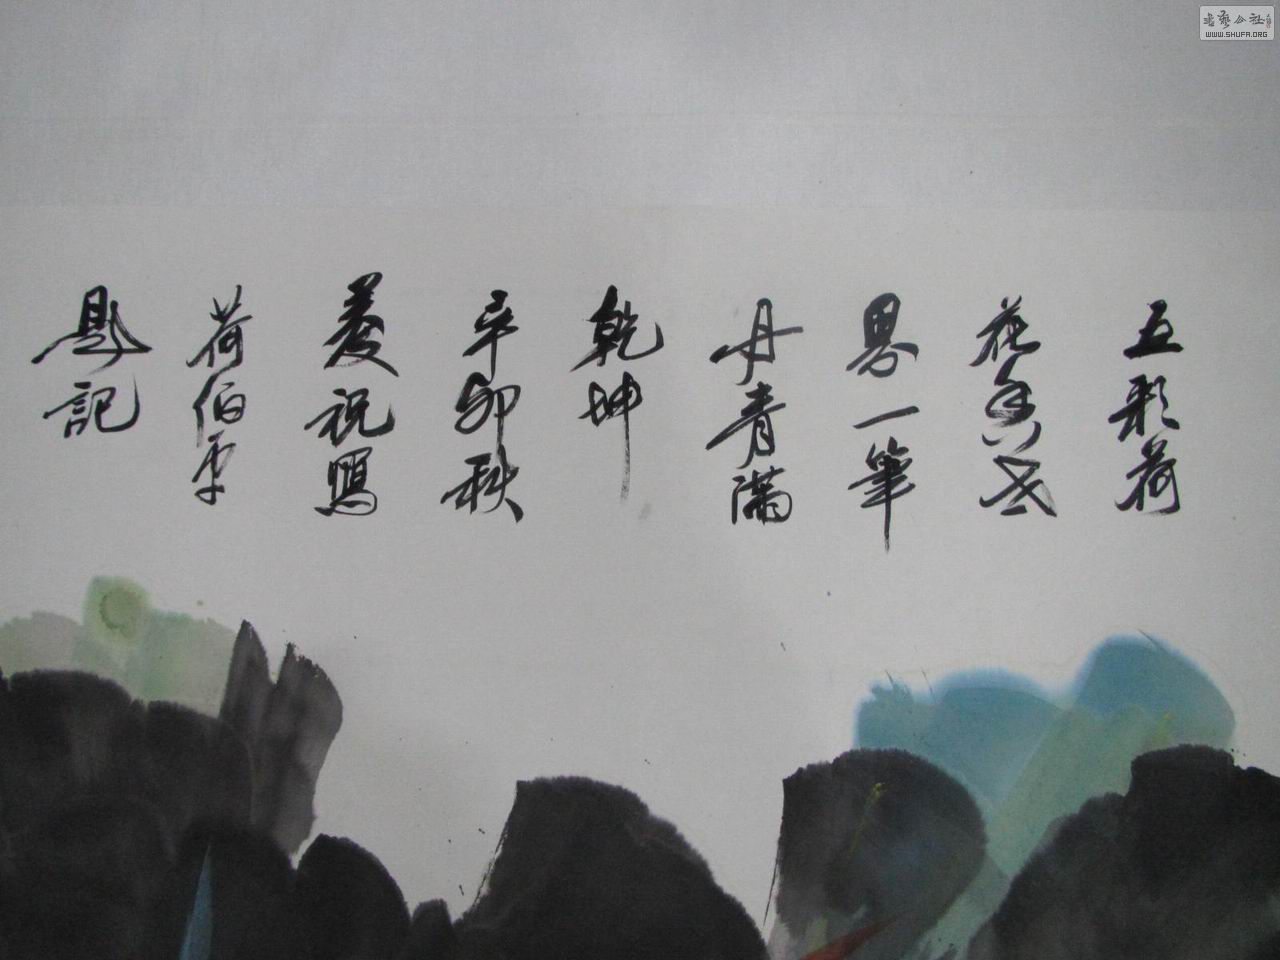 五彩荷
花香世
界一筆
丹青滿
乾坤
辛卯秋
祝寫
荷伯
題記
书艺公社
WWW.SHUFA.ORG